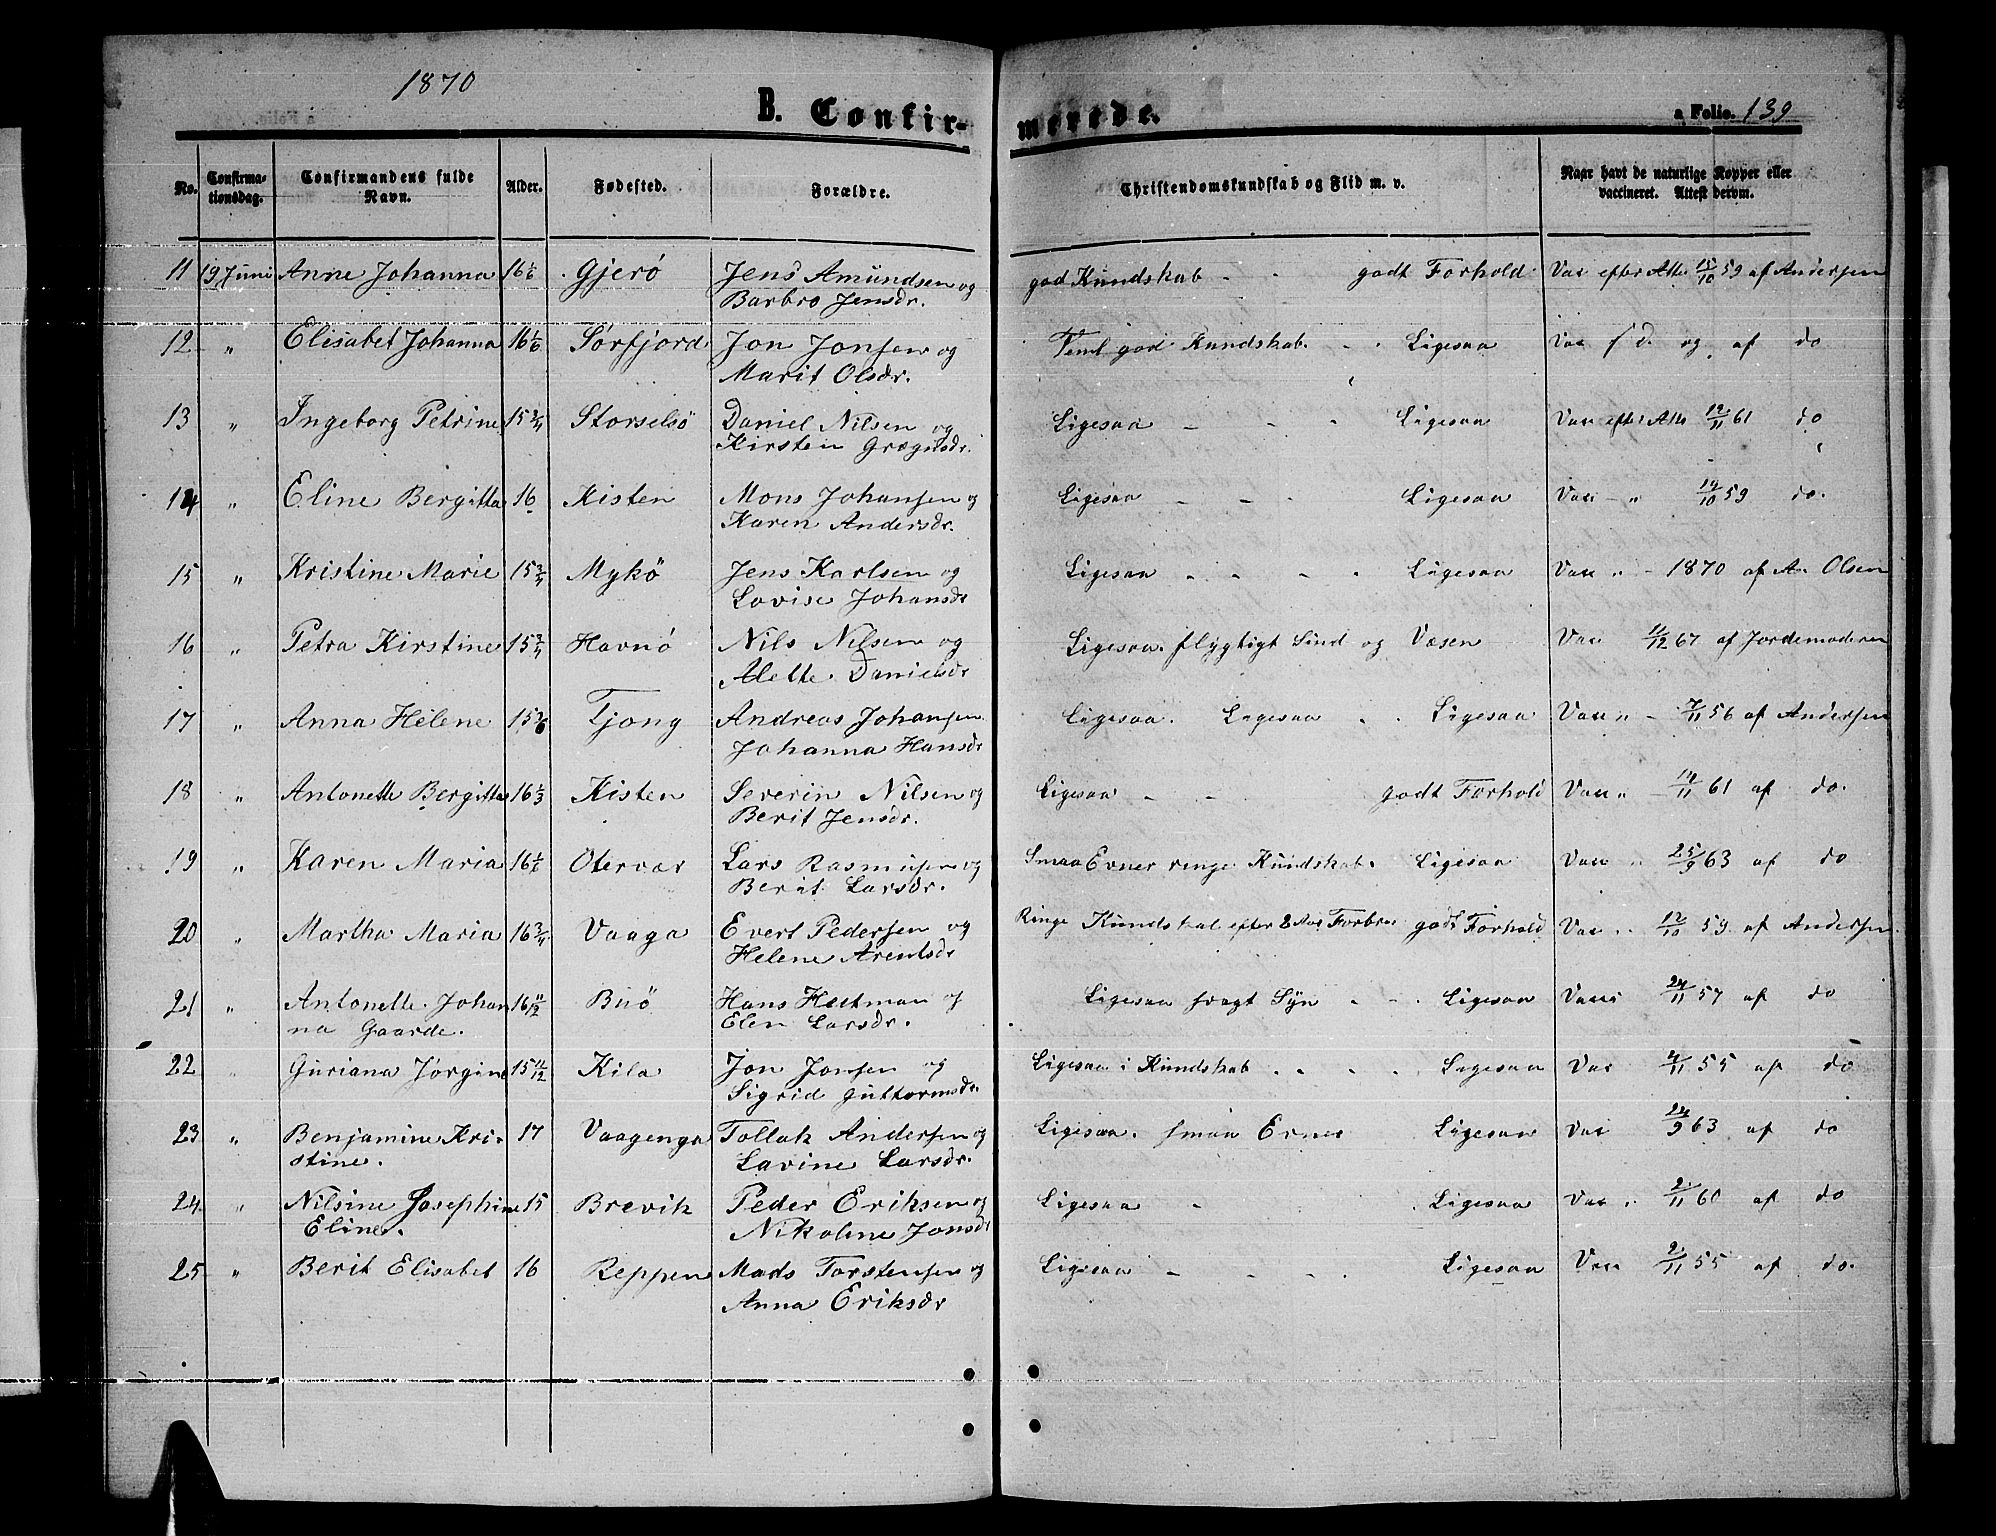 1870
B. Confir- merede. a Folio. 139
No. Confirma- tionsdag. Confirmandens fulde Navn. Alder. Fødested. Forældre. Christendomskundskab og Flid m. v. Naar havt de naturlige Kopper eller vaccineret. Attest derom.
11 19 Juni Anne Johanna 16 1/6 Gjerö Jens Amundsen og god Kundskab - - godt Forhold Vac efter Atte 15/10 59 af Andersen
Barbro Jensdr.
12 " Elisabet Johanna 16 1/6 Sörfjord Jon Jonsen og Teml god Kundskab. - - Ligesaa Vac af do
Marit Olsdr.
13 " Ingeborg Petrine 15 3/4 Storselsö Daniel Nilsen og Ligesaa - - - Ligesaa Vac efter Atte 12/11 61 do
Kirsten
14 " Eline Bergitta 16 Kisten Mons Johansen og Ligesaa - - - Ligesaa Vac - " 19/10 59 do.
Karen Andersdr.
15 " Kristine Marie 15 3/4 Mykö Jens Karlsen og Ligesaa - - - - Ligesaa Vac " - 1870 af A. Olsen
Lovise Johansdr
16 " Petra Kirstine 15 3/4 Havnö Nils Nilsen og Ligesaa. flygtigt Sind og Væsen Vac 11/12 67 af Jordemoderen
Alette Danielsdr
17 " Anna Helene 15 Tjong Andreas Johansen Ligesaa. Ligesaa - - Ligesaa Vac " - 7/11 56 af Andersen
Johanna Hansdr
18 " Antonette Bergitta 16 1/3 Kisten Severin Nilsen og Ligesaa - - godt Forhold Vac " - 14/11 61 af do.
Berit Jensdr.
19 " Karen Maria 16 Otervær Lars Rasmusen og Smaa Evner ringe Kundskab. Ligesaa Vac " 25/9 63 af do
Berit Larsdr.
20 " Martha Maria 16 3/4 Vaaga Evert Pedersen og Ringe Kundskab efter 8 godt Forhold Vac " 12/10 59 af Andersen
Helene Arentsdr
21 " Antonette Johan 16 11/12 Buö Hans Hestman og Ligesaa svagt Syn - - Ligesaa Vac 24/11 57 af do
na Gaarde. Elen Larsdr.
22 " Guriana Jörgine 15 11/12 Kila Jon Jonsen og Ligesaa i Kundskab - - - - Ligesaa Vac 4/11 55 af do
Sigrid Guttormsdr
23 " Benjamine Kri- 17 Vaagenga Tollak Andersen og Ligesaa. smaa Evner Ligesaa Vac 24/9 63 af do
stine. Lavine Larsdr.
24 " Nilsine Josephine 15 Brevik Peder Eriksen og Ligesaa - Ligesaa Vac " 2/11 60 af do
Eline. Nikoline Jonsdr
25 " Berit Elisabet 16 Reppen Mads Torstensen og Ligesaa - - - - Ligesaa Vac 2/11 55 af do.
Anna Eriksdr